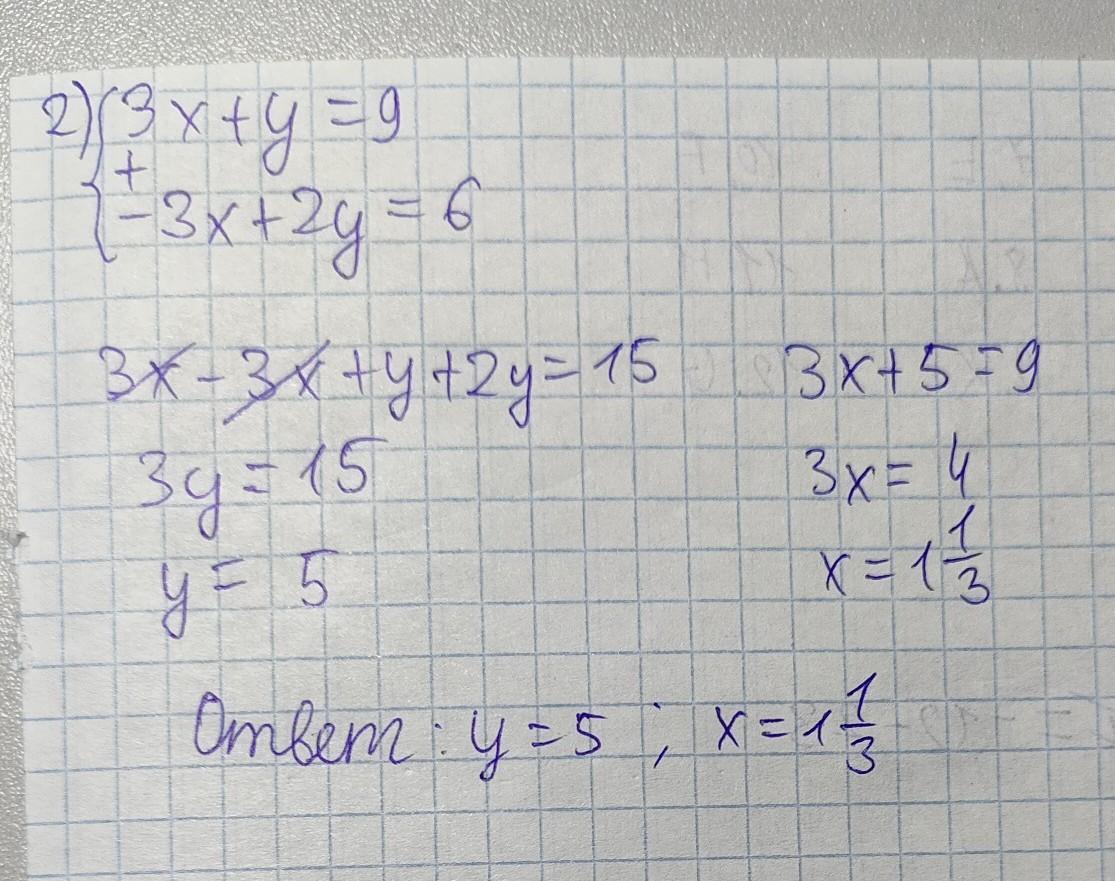 2) { 3x + y = 9
+
- 3x + 2y = 6
3x - 3x + y + 2y = 15
3y = 15
y = 5
3x + 5 = 9
3x = 4
x = 1 1/3
Ответ: y = 5 ; x = 1 1/3